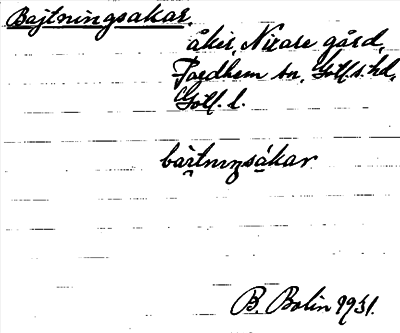 Bajtningsakar,
åker, Nixare gård,
Fardhem sn, Gotl. s. hd,
Gotl. l.
bàɪtnɪŋsákar
B. Bolin 1931.